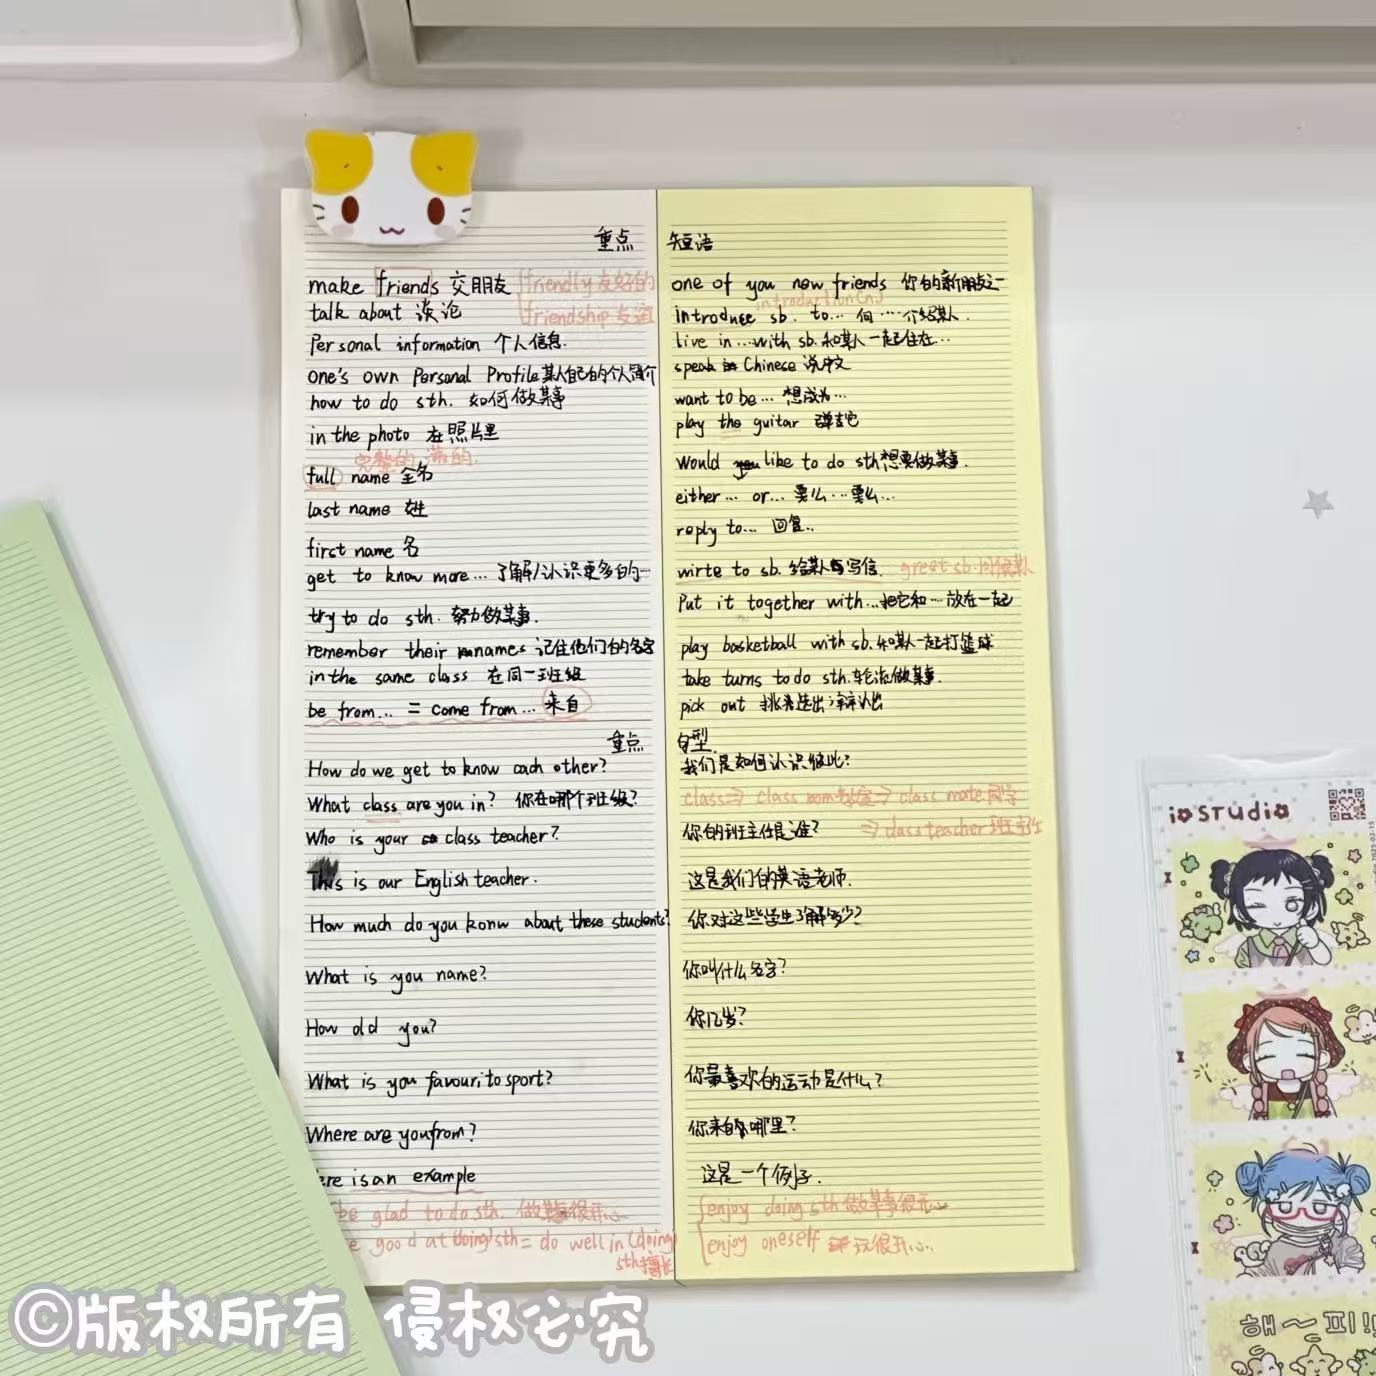 重点 短语
make friends 交朋友 friendly 友好的
friendship 友谊
talk about 谈论
Personal information 个人信息.
one's own Personal Profile 某人自己的个人简介
how to do sth. 如何做某事
in the photo 在照片里
完整的 满的.
full name 全名
last name 姓
first name 名
get to know more... 了解/认识更多的…
try to do sth. 努力做某事.
remember their names 记住他们的名字
in the same class 在同一班级
be from... = come from... 来自
one of you new friends 你的新朋友之一
introduction(n.)
introduce sb. to... 向……介绍某人.
live in...with sb. 和某人一起住在…
speak Chinese 说中文
want to be... 想成为…
play the guitar 弹吉它
would like to do sth 想要做某事.
either... or... 要么…要么…
reply to... 回复..
wirte to sb. 给某人写信. greet sb. 问候某人
Put it together with...把它和…放在一起
play basketball with sb. 和某人一起打篮球
take turns to do sth. 轮流做某事.
pick out 挑选出;辩认出
重点 句型.
How do we get to know each other? 我们是如何认识彼此?
class⇒ class room 教室⇒ class mate 同学
⇒ class teacher 班主任
What class are you in? 你在哪个班级?
Who is your class teacher? 你的班主任是谁?
This is our English teacher. 这是我们的英语老师.
How much do you konw about these students? 你对这些学生了解多少?
What is you name? 你叫什么名字?
How old you? 你几岁?
What is you favourito sport? 你最喜欢的运动是什么?
Where are you from? 你来自哪里?
ere is an example 这是一个例子.
be glad to do sth. 做某事很开心
e good at (doing) sth = do well in (doing)
sth 擅长
enjoy doing sth 做某事很开心
enjoy oneself 玩很开心.
io STUDio
2025-02-15
해~피!!
©版权所有 侵权必究